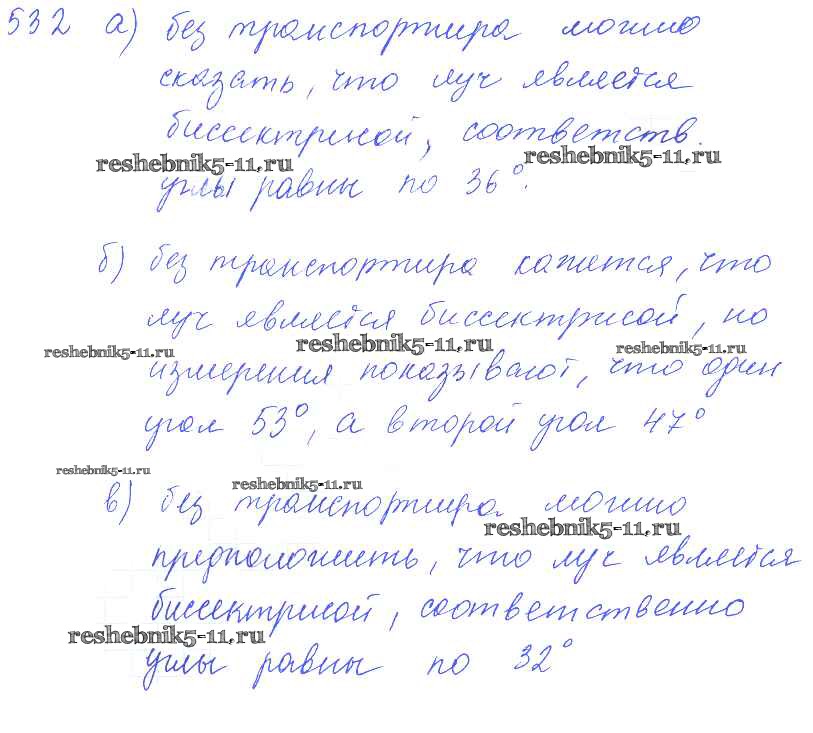 532 а) без транспортира можно
сказать, что луч является
биссектрисой, соответств.
reshebnik5-11.ru reshebnik5-11.ru
углы равны по 36°.
б) без транспортира кажется, что
луч является биссектрисой, но
reshebnik5-11.ru reshebnik5-11.ru reshebnik5-11.ru
измерения показывают, что один
угол 53°, а второй угол 47°
reshebnik5-11.ru reshebnik5-11.ru
в) без транспортира можно
reshebnik5-11.ru
предположить, что луч является
биссектрисой, соответственно
reshebnik5-11.ru
углы равны по 32°